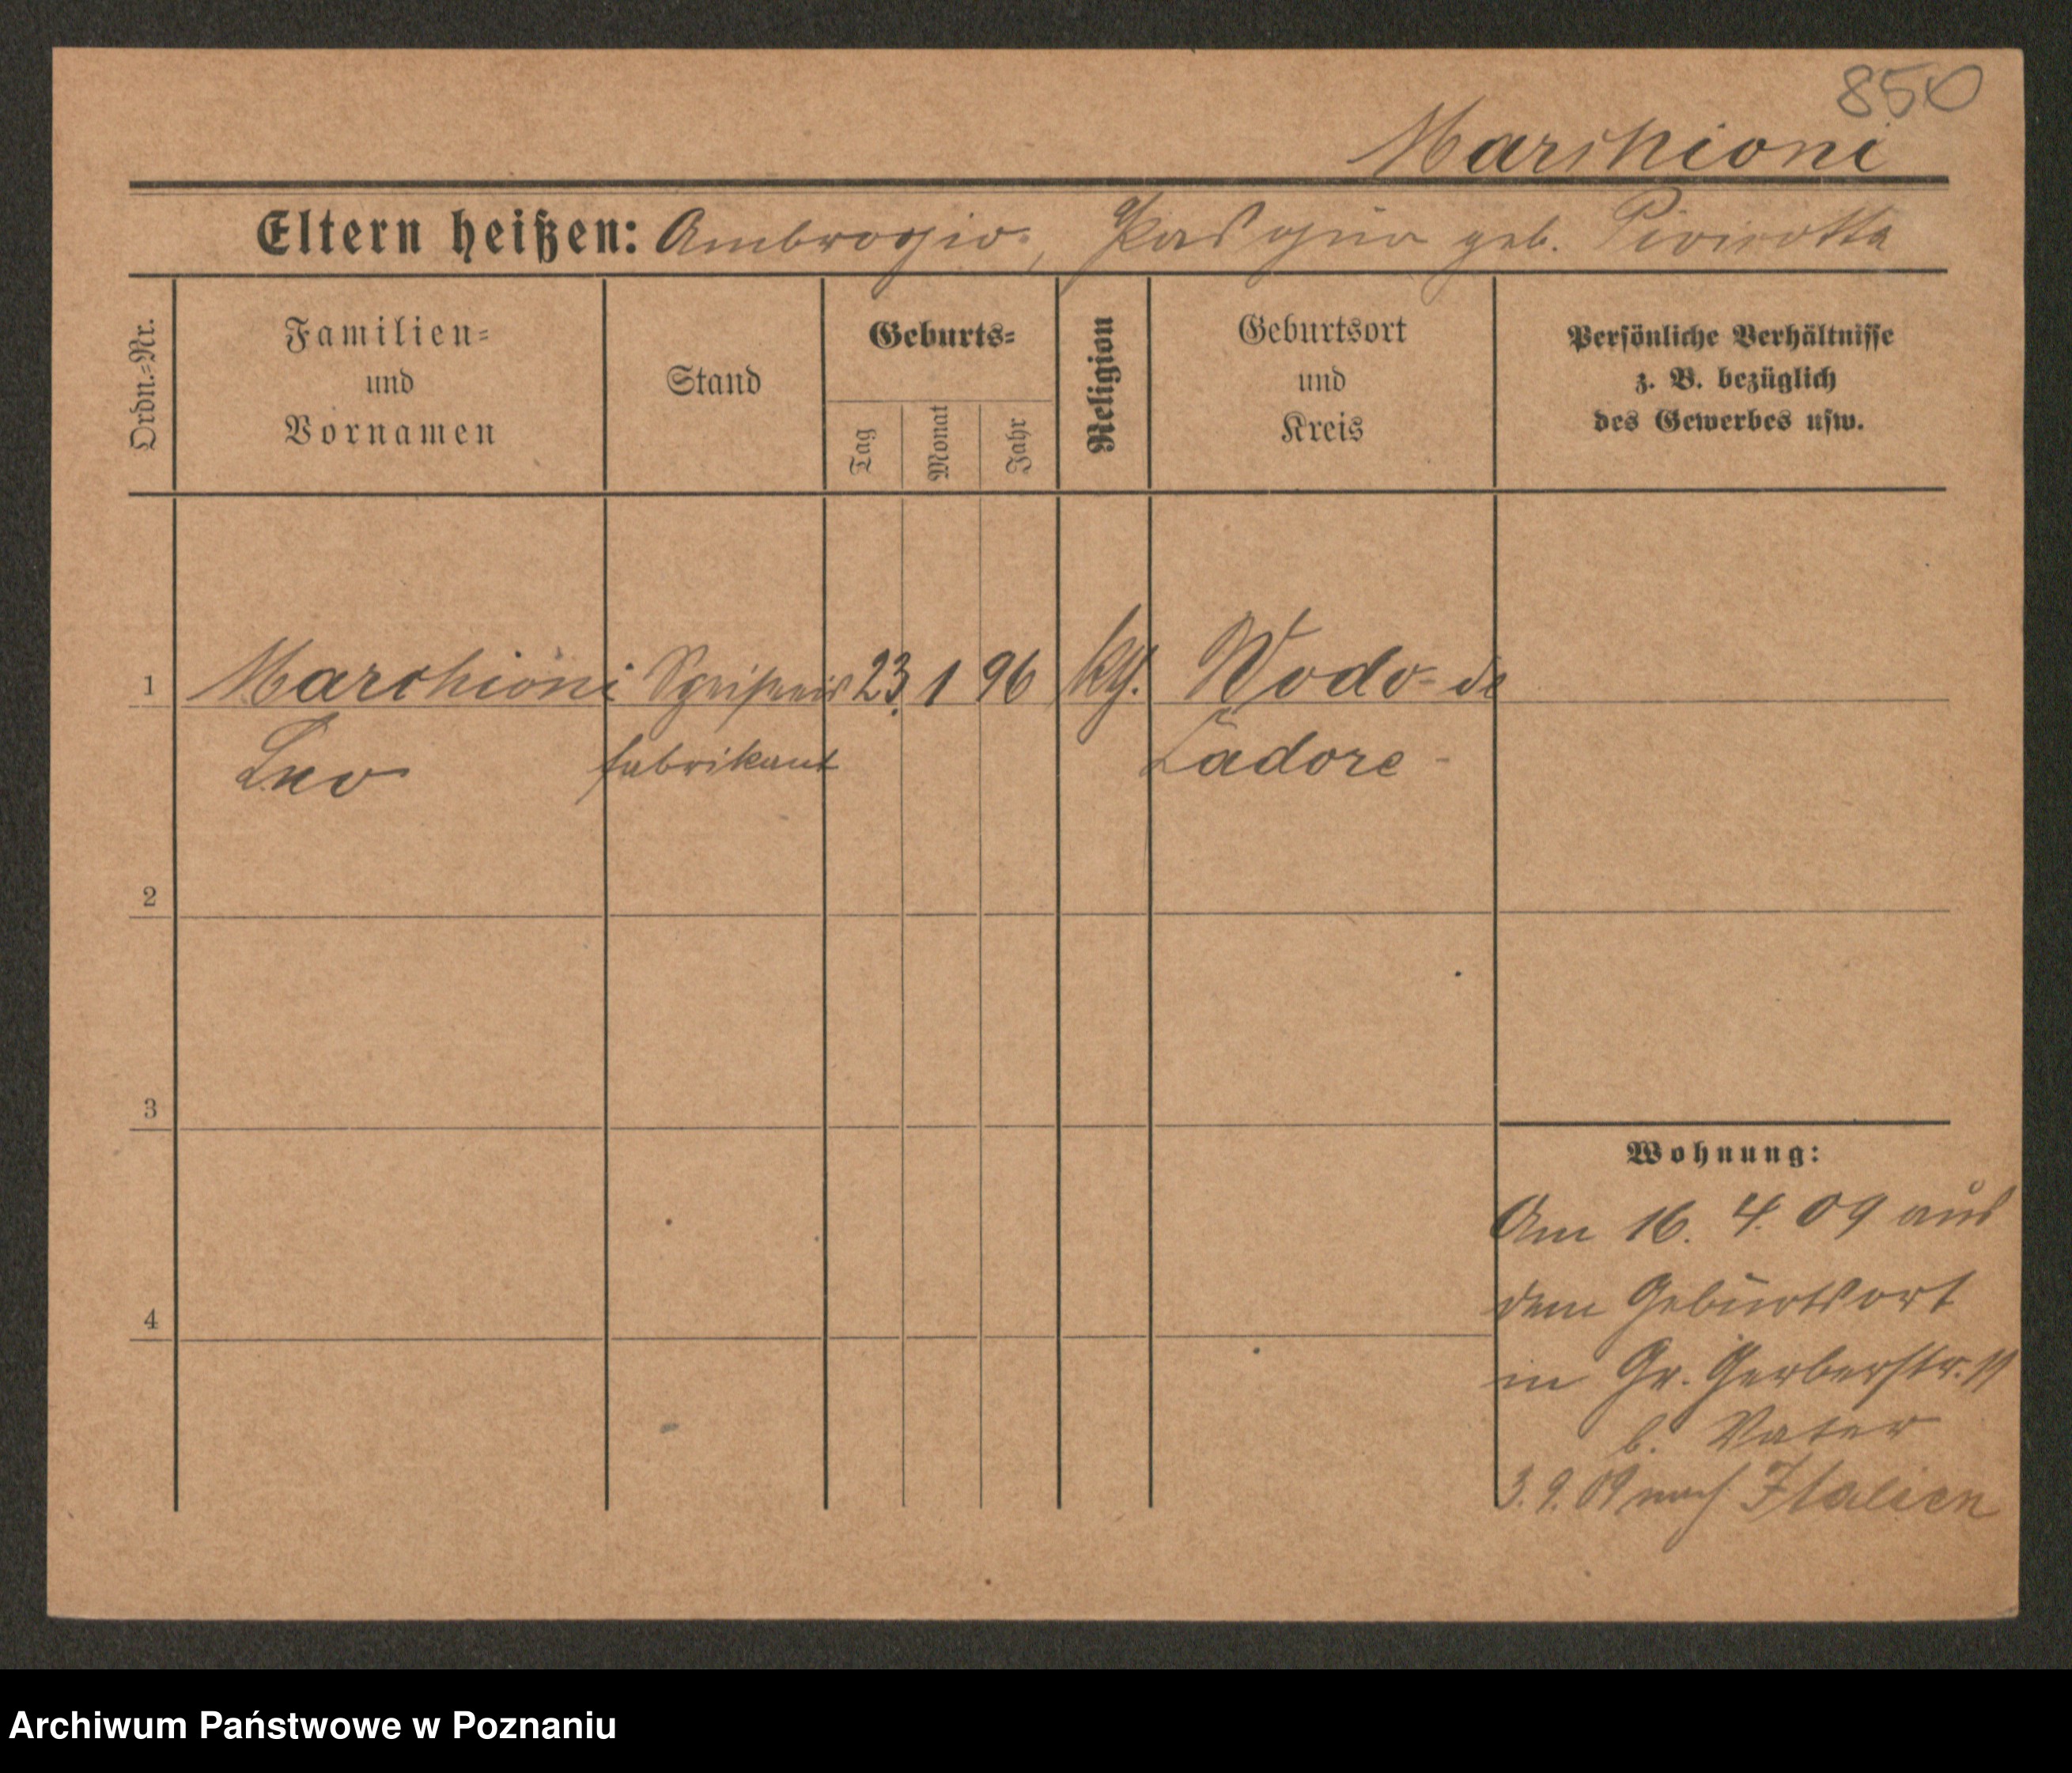 850
Marchioni
Eltern heißen: Ambrogio, Pasqua geb. Pivirotta
Ordn.-Nr.
Familien-
und
Vornamen
Stand
Geburts-
Tag
Monat
Jahr
Religion
Geburtsort
und
Kreis
Persönliche Verhältnisse
z. B. bezüglich
des Gewerbes usw.
1
Marchioni
Leo
Speiseeis
fabrikant
23. 1 96
kth.
Vodo-de
Cadore-
2
3
4
Wohnung:
Am 16. 4. 09 aus
dem Geburtsort
in Gr. Gerberstr. 11
b. Vater
3. 9. 09 nach Italien
Archiwum Państwowe w Poznaniu